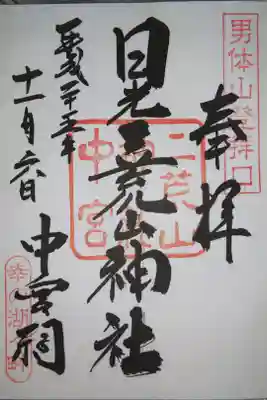 男体山登拝口
奉拝
日光二荒山神社
二荒山
中宮
中宮祠
平成二十五年
十一月六日
幸の湖畔